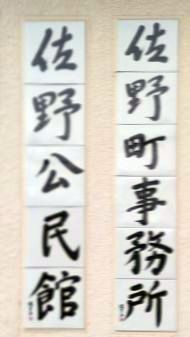 佐野町事務所
佐野公民館